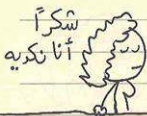 شكرًا
أنا نكديه